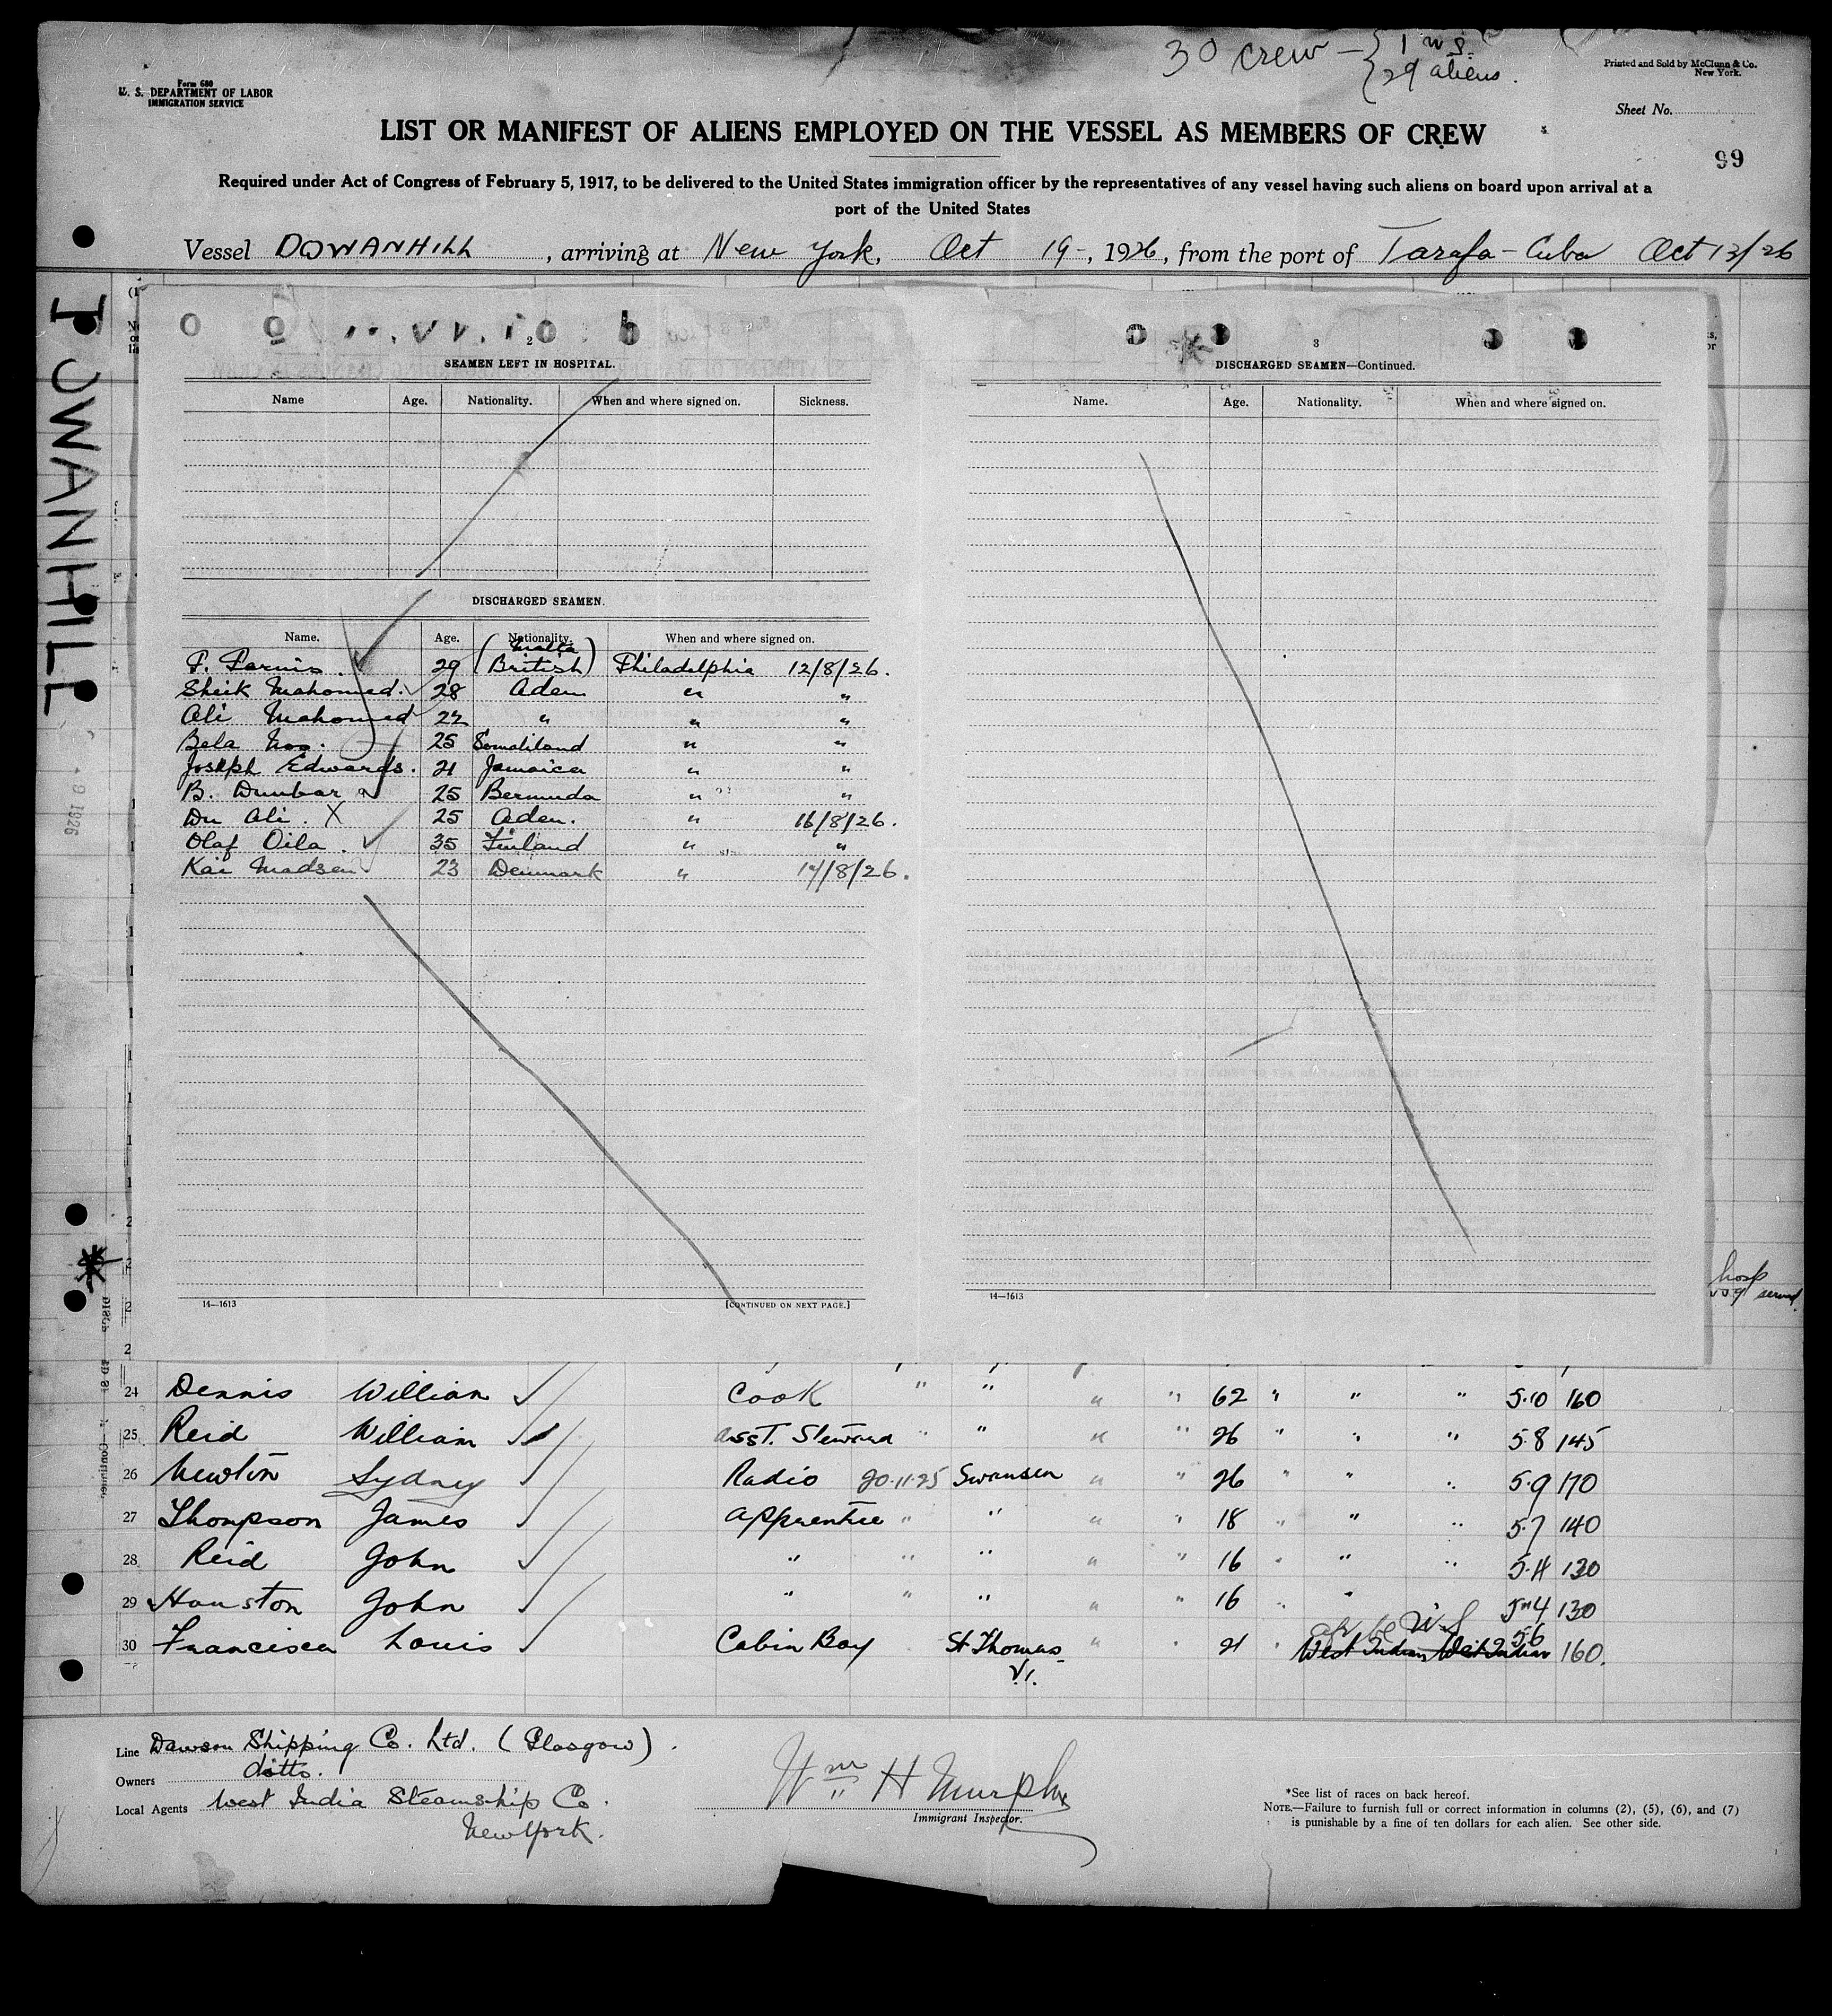 30 crew - { 1 U.S.
{ 29 aliens.
Printed and Sold by McClunn & Co.
New York.
Form 680
U. S. DEPARTMENT OF LABOR
IMMIGRATION SERVICE
Sheet No.
LIST OR MANIFEST OF ALIENS EMPLOYED ON THE VESSEL AS MEMBERS OF CREW
99
Required under Act of Congress of February 5, 1917, to be delivered to the United States immigration officer by the representatives of any vessel having such aliens on board upon arrival at a
port of the United States
Vessel DOWANHILL, arriving at New York, Oct 19-, 1926, from the port of Tarafa - Cuba Oct 13/26
DOWANHILL
2
SEAMEN LEFT IN HOSPITAL.
Name Age. Nationality. When and where signed on. Sickness.
DISCHARGED SEAMEN.
Name. Age. Nationality. When and where signed on.
Malta
29 (British) Philadelphia 12/8/26.
Sheik Mahomed. 28 Aden " "
Ali Mahomed 22 " " "
Bela 25 Somaliland " "
Joseph Edwards. 21 Jamaica " "
B. Dunbar 25 Bermuda " "
Ali. X 25 Aden. " 16/8/26.
Olaf Oila. 35 Finland " "
Kai Madsen 23 Denmark " /8/26.
14—1613
[CONTINUED ON NEXT PAGE.]
3
DISCHARGED SEAMEN—Continued.
Name. Age. Nationality. When and where signed on.
14—1613
hosp
served.
24 Dennis William Cook " " " " 62 " " " 5.10 160
25 Reid William Asst. Steward " " " " 26 " " " 5.8 145
26 Newton Sydney Radio 20.11.25 Swansea " " 26 " " " 5.9 170
27 Thompson James Apprentice " " " " 18 " " " 5.7 140
28 Reid John " " " " " 16 " " " 5.4 130
29 Houston John " " " " " 16 " " 5"4 130
U.S. 5.6
30 Francisca Louis Cabin Boy St Thomas " " 21 " West Indian West Indian 160.
V.I.
Line Dawson Shipping Co. Ltd. (Glasgow).
Owners ditto.
Local Agents West India Steamship Co.
New York.
Wm H Murphy
Immigrant Inspector.
*See list of races on back hereof.
NOTE.—Failure to furnish full or correct information in columns (2), (5), (6), and (7)
is punishable by a fine of ten dollars for each alien. See other side.